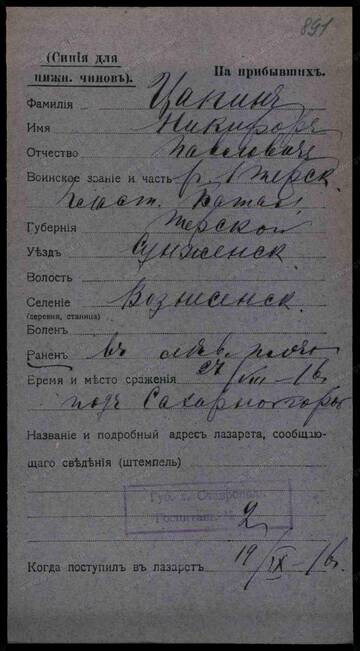 891
(Синія для
нижн. чиновъ).
На прибывшихъ.
Фамилія Цапинъ
Имя Никифоръ
Отчество Павловичъ
Воинское званіе и часть р. 1 Терск.
Пласт. Батал.
Губернія Терской
Уѣздъ Сунженск
Волость
Селеніе Вознесенск.
(деревня, станица)
Боленъ
Раненъ въ лѣв. плечо
Время и мѣсто сраженія 27/VIII-16 г.
подъ Сахарной горы
Названіе и подробный адресъ лазарета, сообщаю-
щаго свѣдѣнія (штемпель)
Губ. г. Ставрополь
Госпиталь № 2
Когда поступилъ въ лазаретъ 19/IX-16 г.